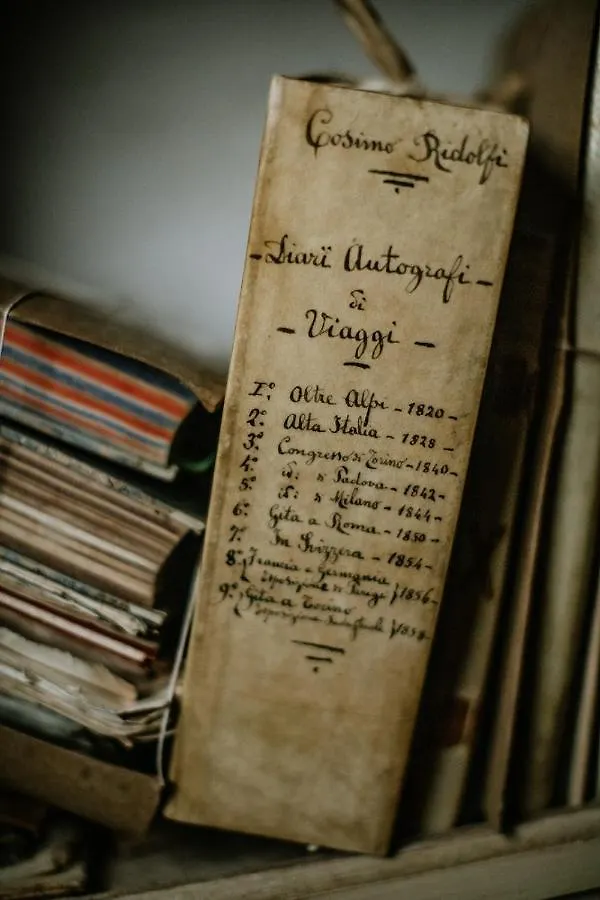 Cosimo Ridolfi
- Diarï Autografi -
di
- Viaggi -
I.º Oltre Alpi - 1820 -
2.º Alta Italia - 1828 -
3.º Congresso di Torino - 1840 -
4.º id: di Padova - 1842 -
5.º id: di Milano - 1844 -
6.º Gita a Roma - 1850 -
7.º In Svizzera - 1854 -
8.º Francia e Germania
Esposizione di Parigi } 1856 -
9.º Gita a Torino
Esposizione } 1858 -